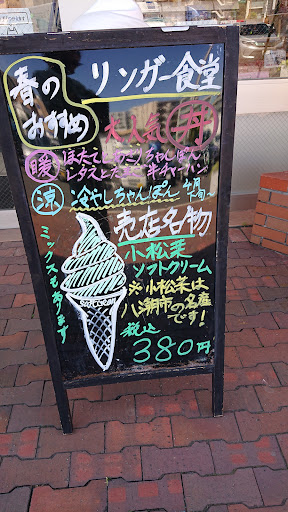 春の
おすすめ
リンガー食堂
大人気 丼
暖 ほたてとあごちゃんぽん
レタスとたまご 半チャーハン
涼 冷やしちゃんぽん 4月下旬〜
売店名物
小松菜
ソフトクリーム
※小松菜は
八潮市の名産
です!
税込
380円
ミックスもあります